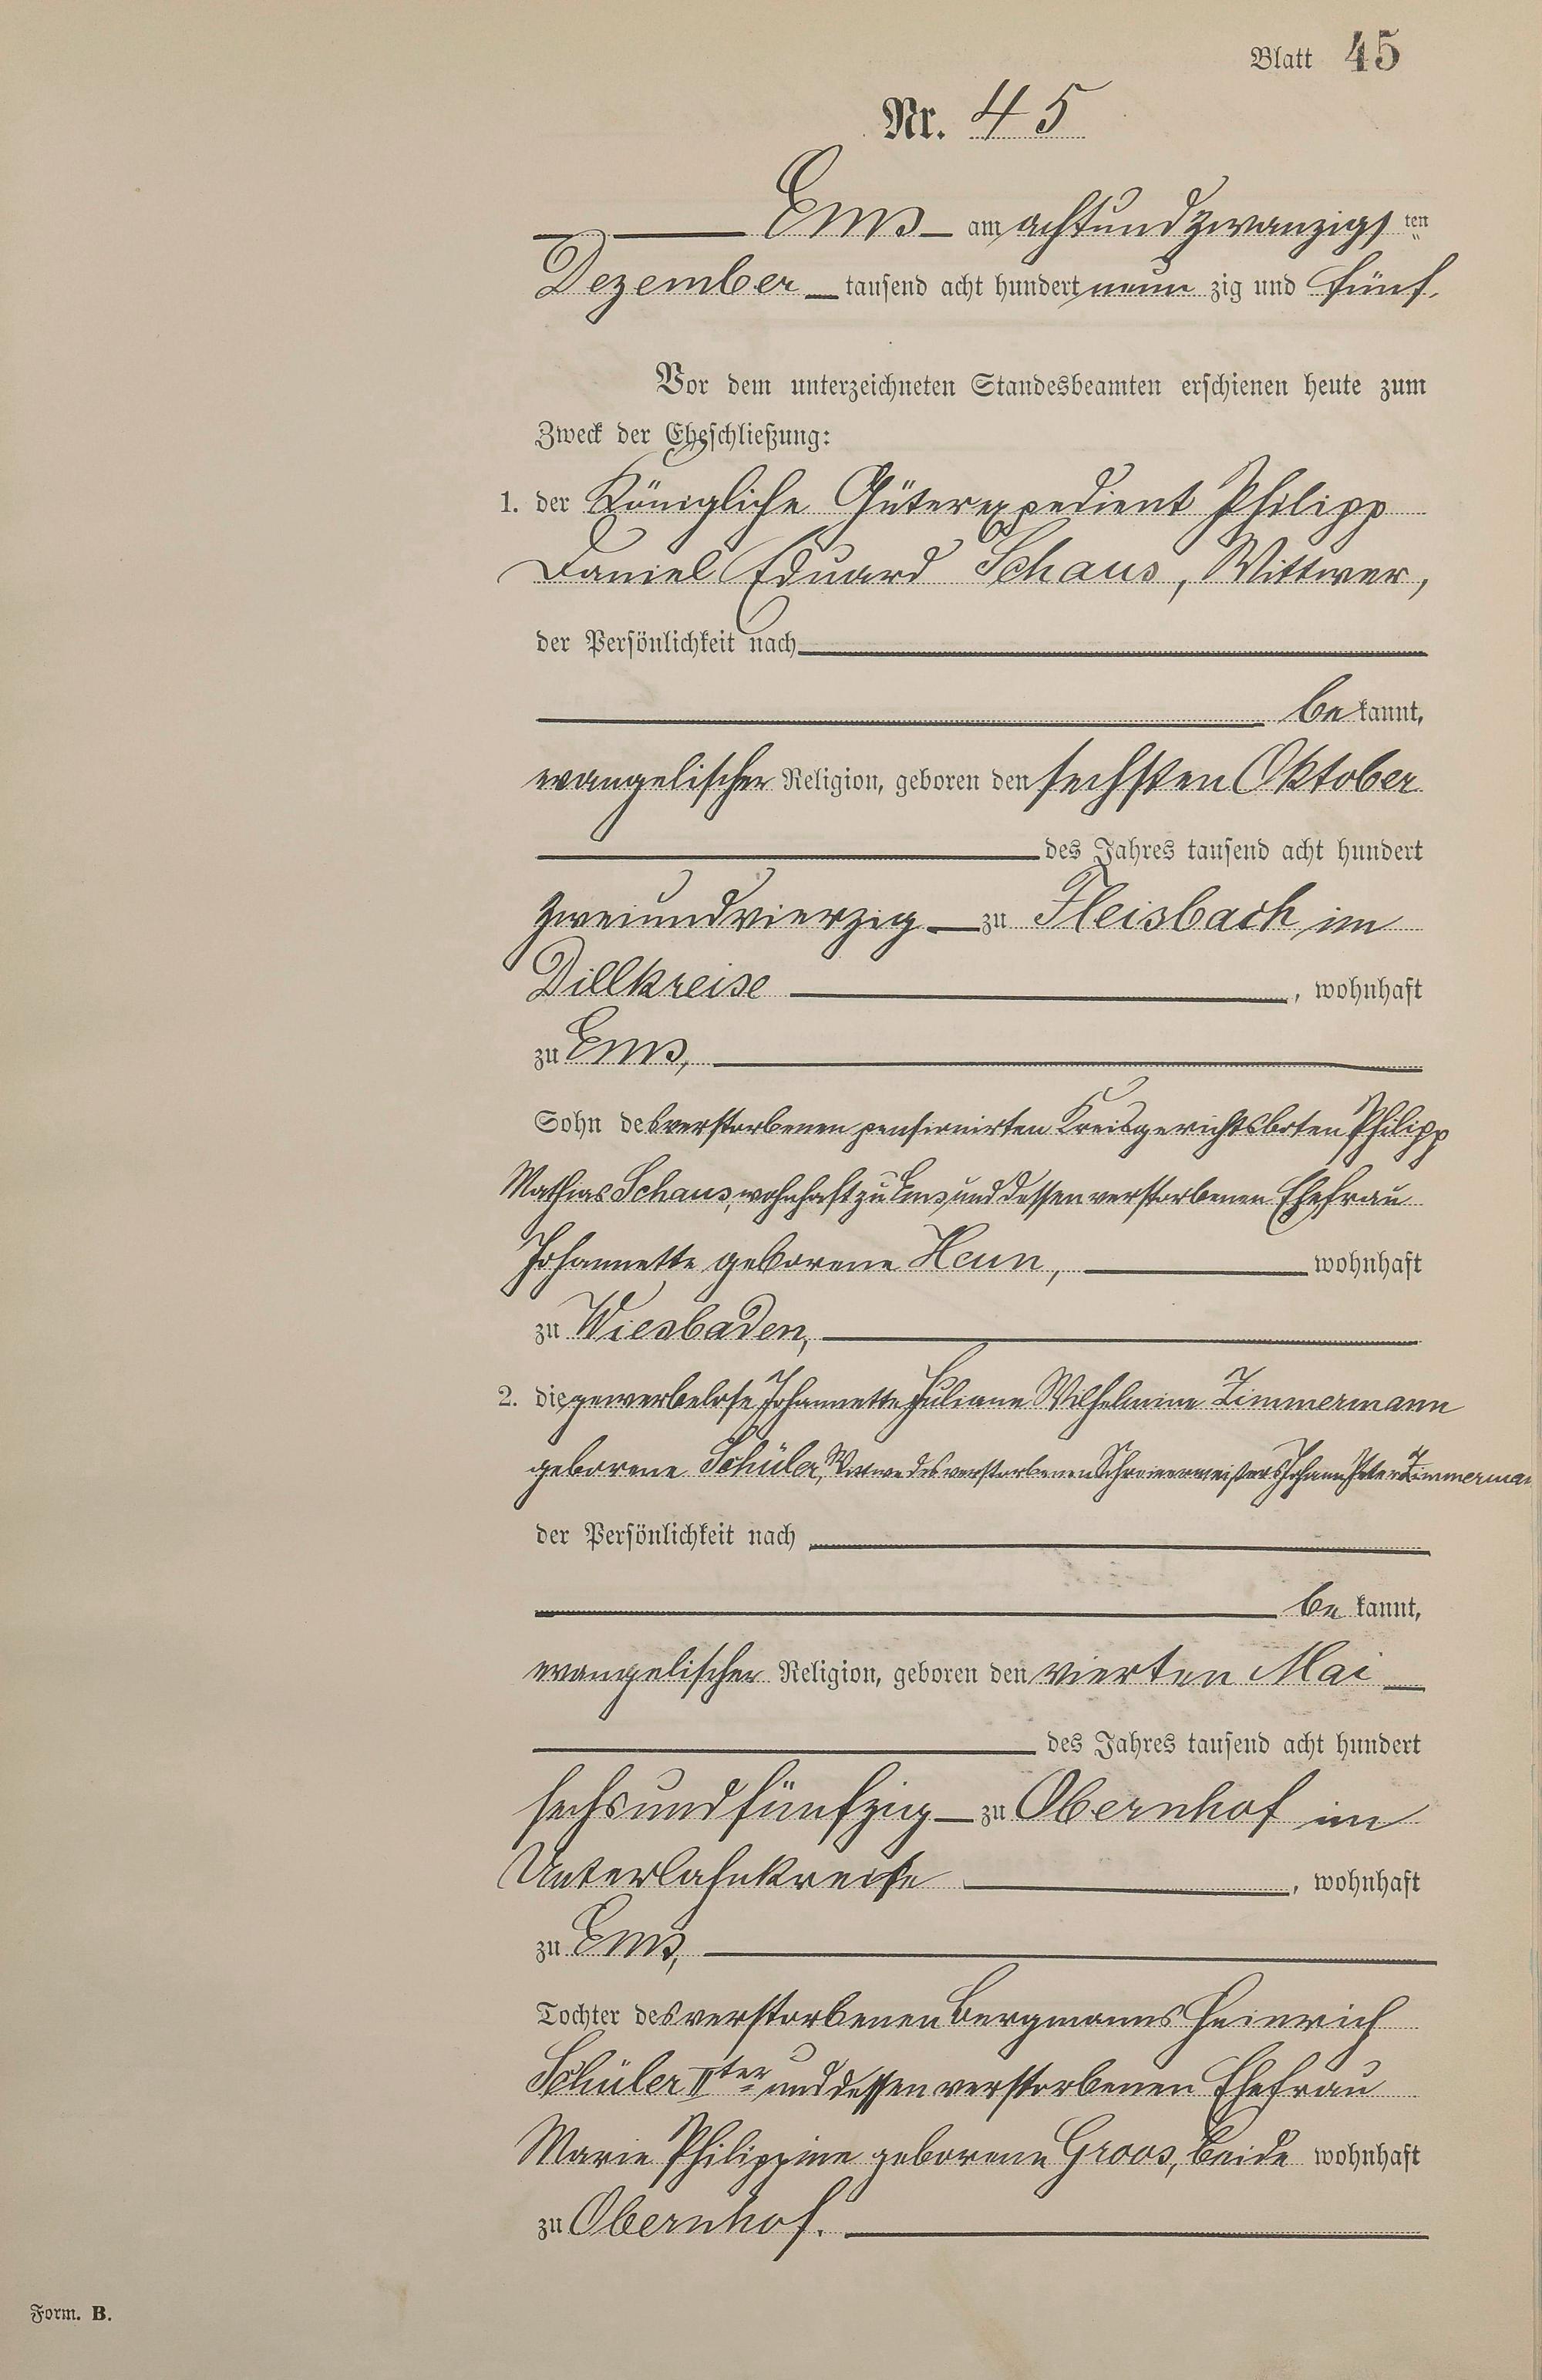 Blatt 45
Nr. 45
Ems am achtundzwanzigs ten
Dezember tausend acht hundert neun zig und fünf.
Vor dem unterzeichneten Standesbeamten erschienen heute zum
Zweck der Eheschließung:
1. der Königliche Güterexpedient Philipp
Daniel Eduard Schaus, Wittwer,
der Persönlichkeit nach
be kannt,
evangelischer Religion, geboren den sechsten Oktober
des Jahres tausend acht hundert
zweiundvierzig zu Fleisbach im
Dillkreise, wohnhaft
zu Ems,
Sohn des verstorbenen pensionirten Kreisgerichtsboten Philipp
Mathias Schaus, wohnhaft zu Ems und dessen verstorbenen Ehefrau
Johannette geborene Heun, wohnhaft
zu Wiesbaden,
2. die gewerbelose Johannette Juliane Wilhelmine Zimmermann
geborene Schüler, Witwe des verstorbenen Schreinermeisters Johann Peter Zimmerman
der Persönlichkeit nach
be kannt,
evangelischer Religion, geboren den vierten Mai
des Jahres tausend acht hundert
sechsundfünfzig zu Obernhof im
Unterlahnkreise, wohnhaft
zu Ems,
Tochter des verstorbenen Bergmanns Heinrich
Schüler IIter und dessen verstorbenen Ehefrau
Marie Philippine geborene Groos, beide wohnhaft
zu Obernhof.
Form. B.